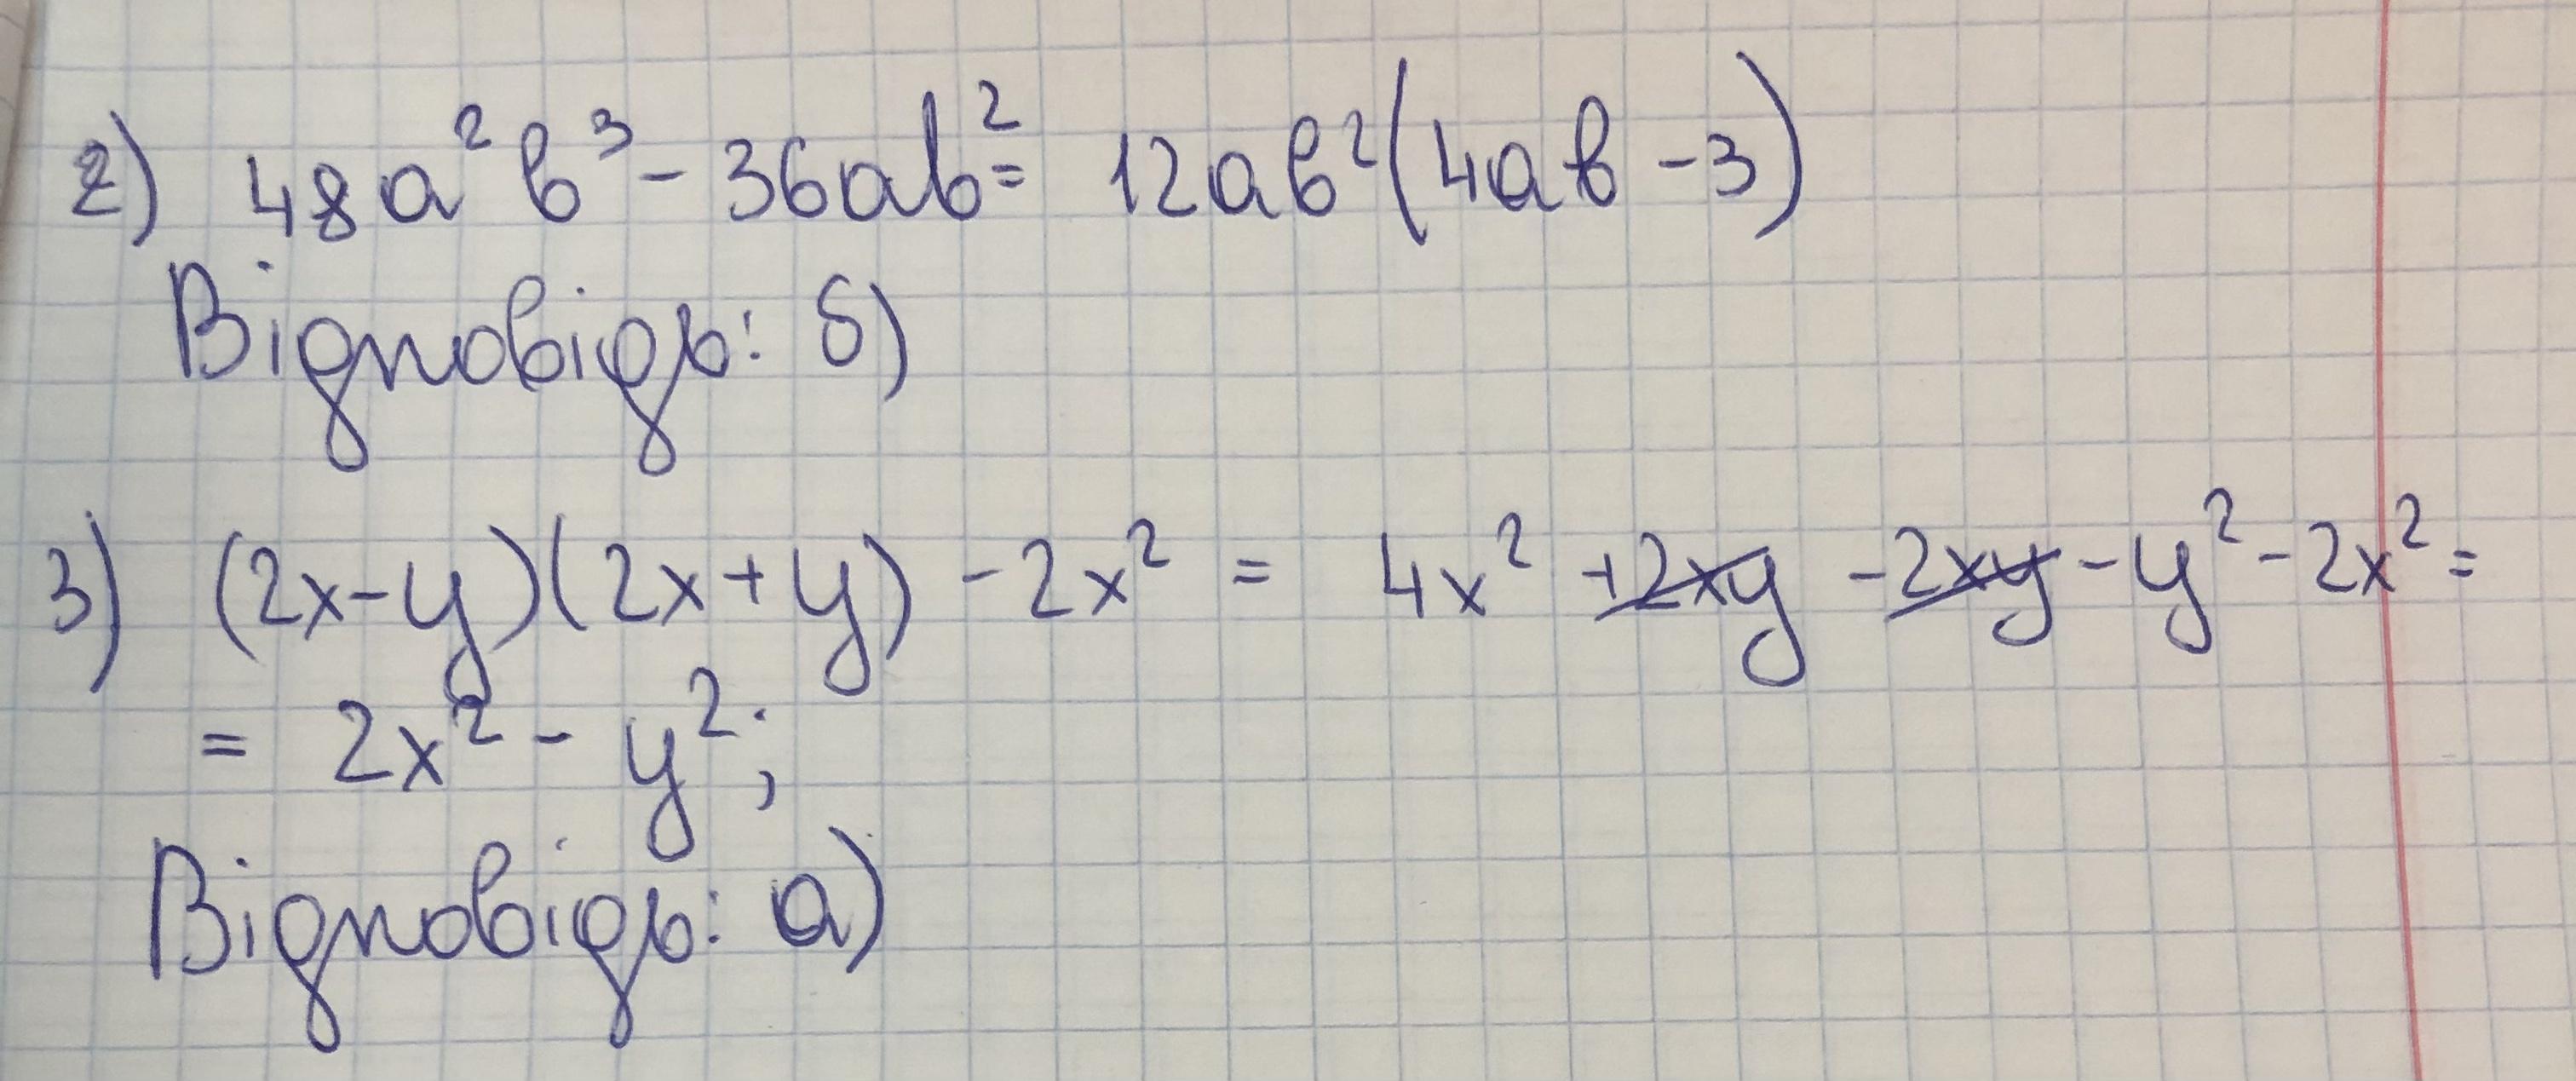 2) 48a²b³ - 36ab² = 12ab²(4ab - 3)
Відповідь: б)
3) (2x-y)(2x+y) - 2x² = 4x² +2xy -2xy - y² - 2x² =
= 2x² - y²;
Відповідь: а)